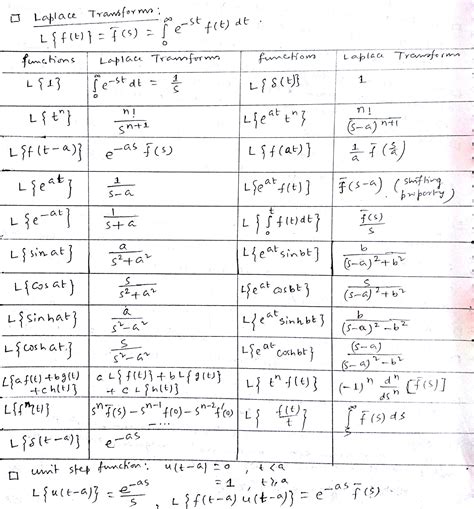 □ Laplace Transforms:
L{f(t)} = f̄(s) = ∫₀^∞ e^-st f(t) dt.
functions | Laplace Transforms | functions | Laplace Transforms
L{1} | ∫₀^∞ e^-st dt = 1/s | L{δ(t)} | 1
L{t^n} | n!/s^(n+1) | L{e^at t^n} | n!/(s-a)^(n+1)
L{f(t-a)} | e^-as f̄(s) | L{f(at)} | 1/a f̄(s/a)
L{e^at} | 1/(s-a) | L{e^at f(t)} | f̄(s-a). (shifting property)
L{e^-at} | 1/(s+a) | L{∫₀^t f(t)dt} | f̄(s)/s
L{sinat} | a/(s²+a²) | L{e^at sinbt} | b/((s-a)²+b²)
L{cosat} | s/(s²+a²) | L{e^at cosbt} | s/((s-a)²+b²)
L{sinhat} | a/(s²-a²) | L{e^at sinhbt} | b/((s-a)²-b²)
L{coshat} | s/(s²-a²) | L{e^at coshbt} | (s-a)/((s-a)²-b²)
L{af(t)+bg(t)+ch(t)} | c L{f(t)}+bL{g(t)}+cL{h(t)} | L{t^n f(t)} | (-1)^n d^n/ds^n [f̄(s)]
L{f^n(t)} | s^n f̄(s) - s^(n-1) f(0) - s^(n-2) f'(0) -.... | L{f(t)/t} | ∫ₛ^∞ f̄(s) ds
L{δ(t-a)} | e^-as
□ unit step function: u(t-a) = 0, t<a
= 1, t≥a
L{u(t-a)} = e^-as/s, L{f(t-a) u(t-a)} = e^-as f̄(s).